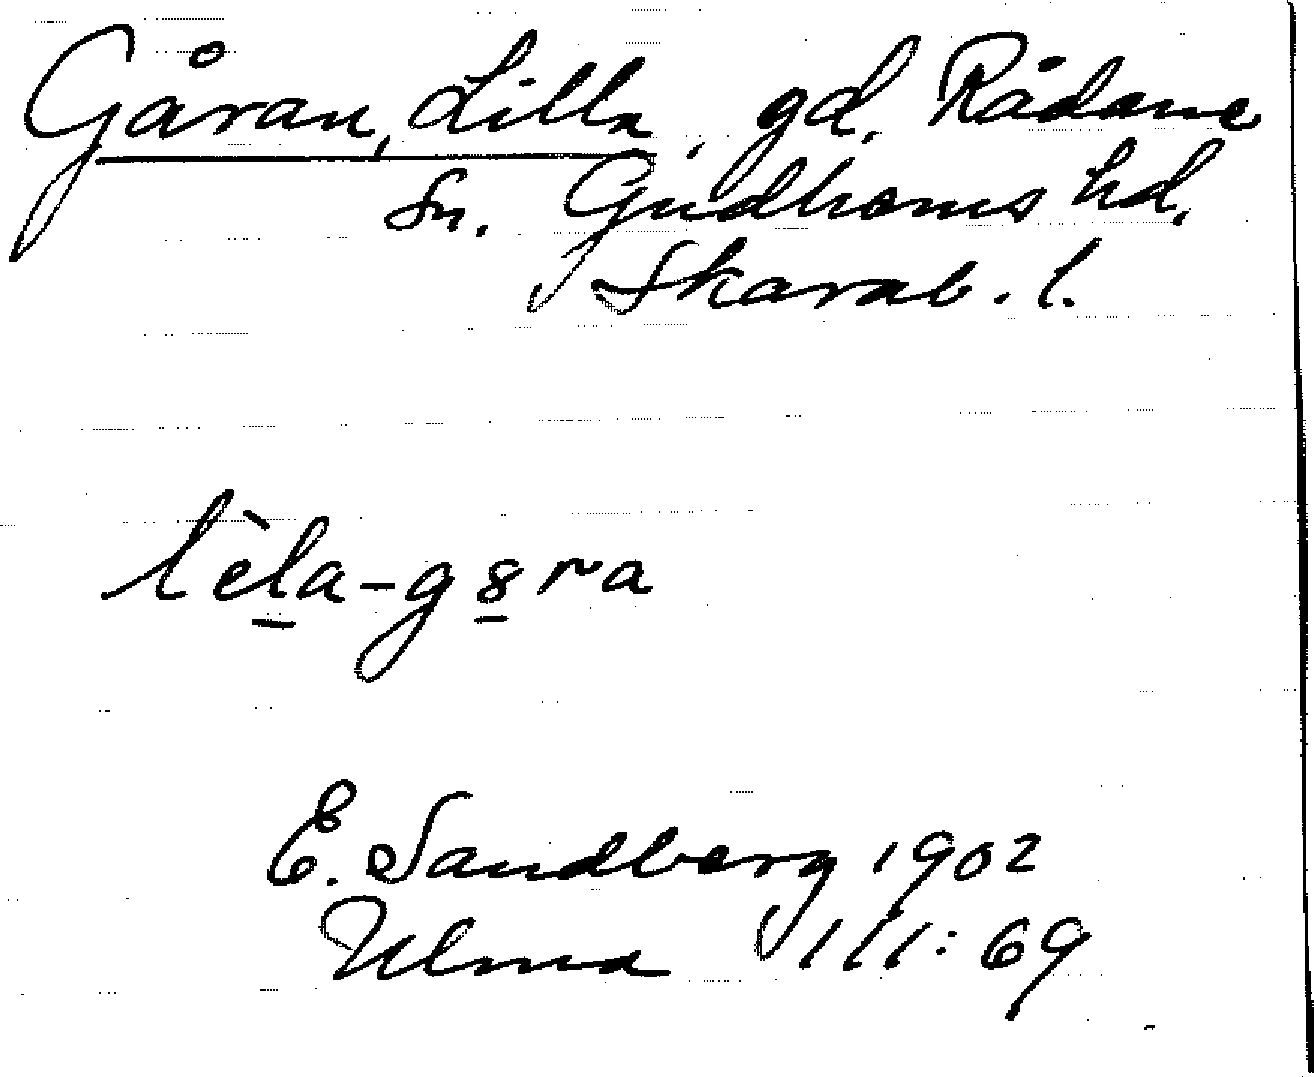 Gåran, Lilla, gd, Rådene
Sn. Gudhems hd,
Skarab. l.
lèla-g8ra
E. Sandberg 1902
Ulma 111:69